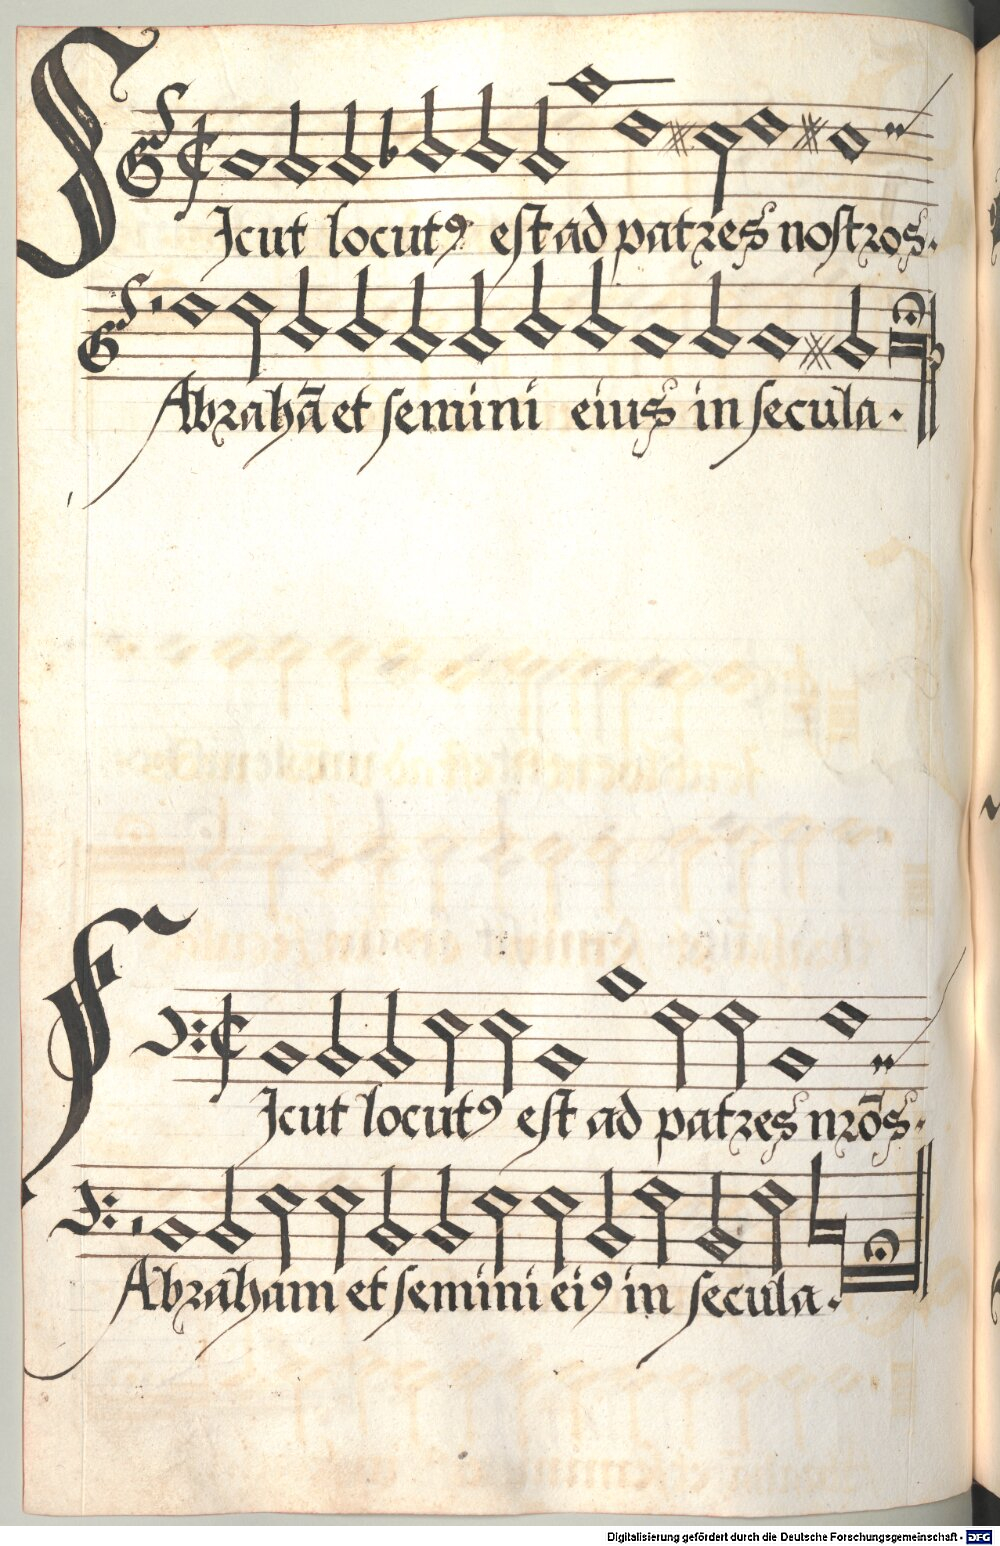 Sicut locutꝰ est ad patres nostros.
Abrahā et semini eius in secula.
Sicut locutꝰ est ad patres nrōs.
Abraham et semini eiꝰ in secula.
Digitalisierung gefördert durch die Deutsche Forschungsgemeinschaft - DFG